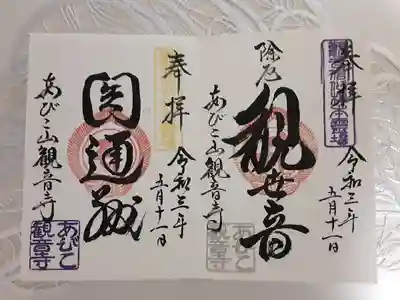 奉拝
除厄
観世音
あびこ山観音寺
令和三年
五月十一日
あびこ
観音寺
奉拝
圓通殿
あびこ山観音寺
令和三年
五月十一日
あびこ
観音寺